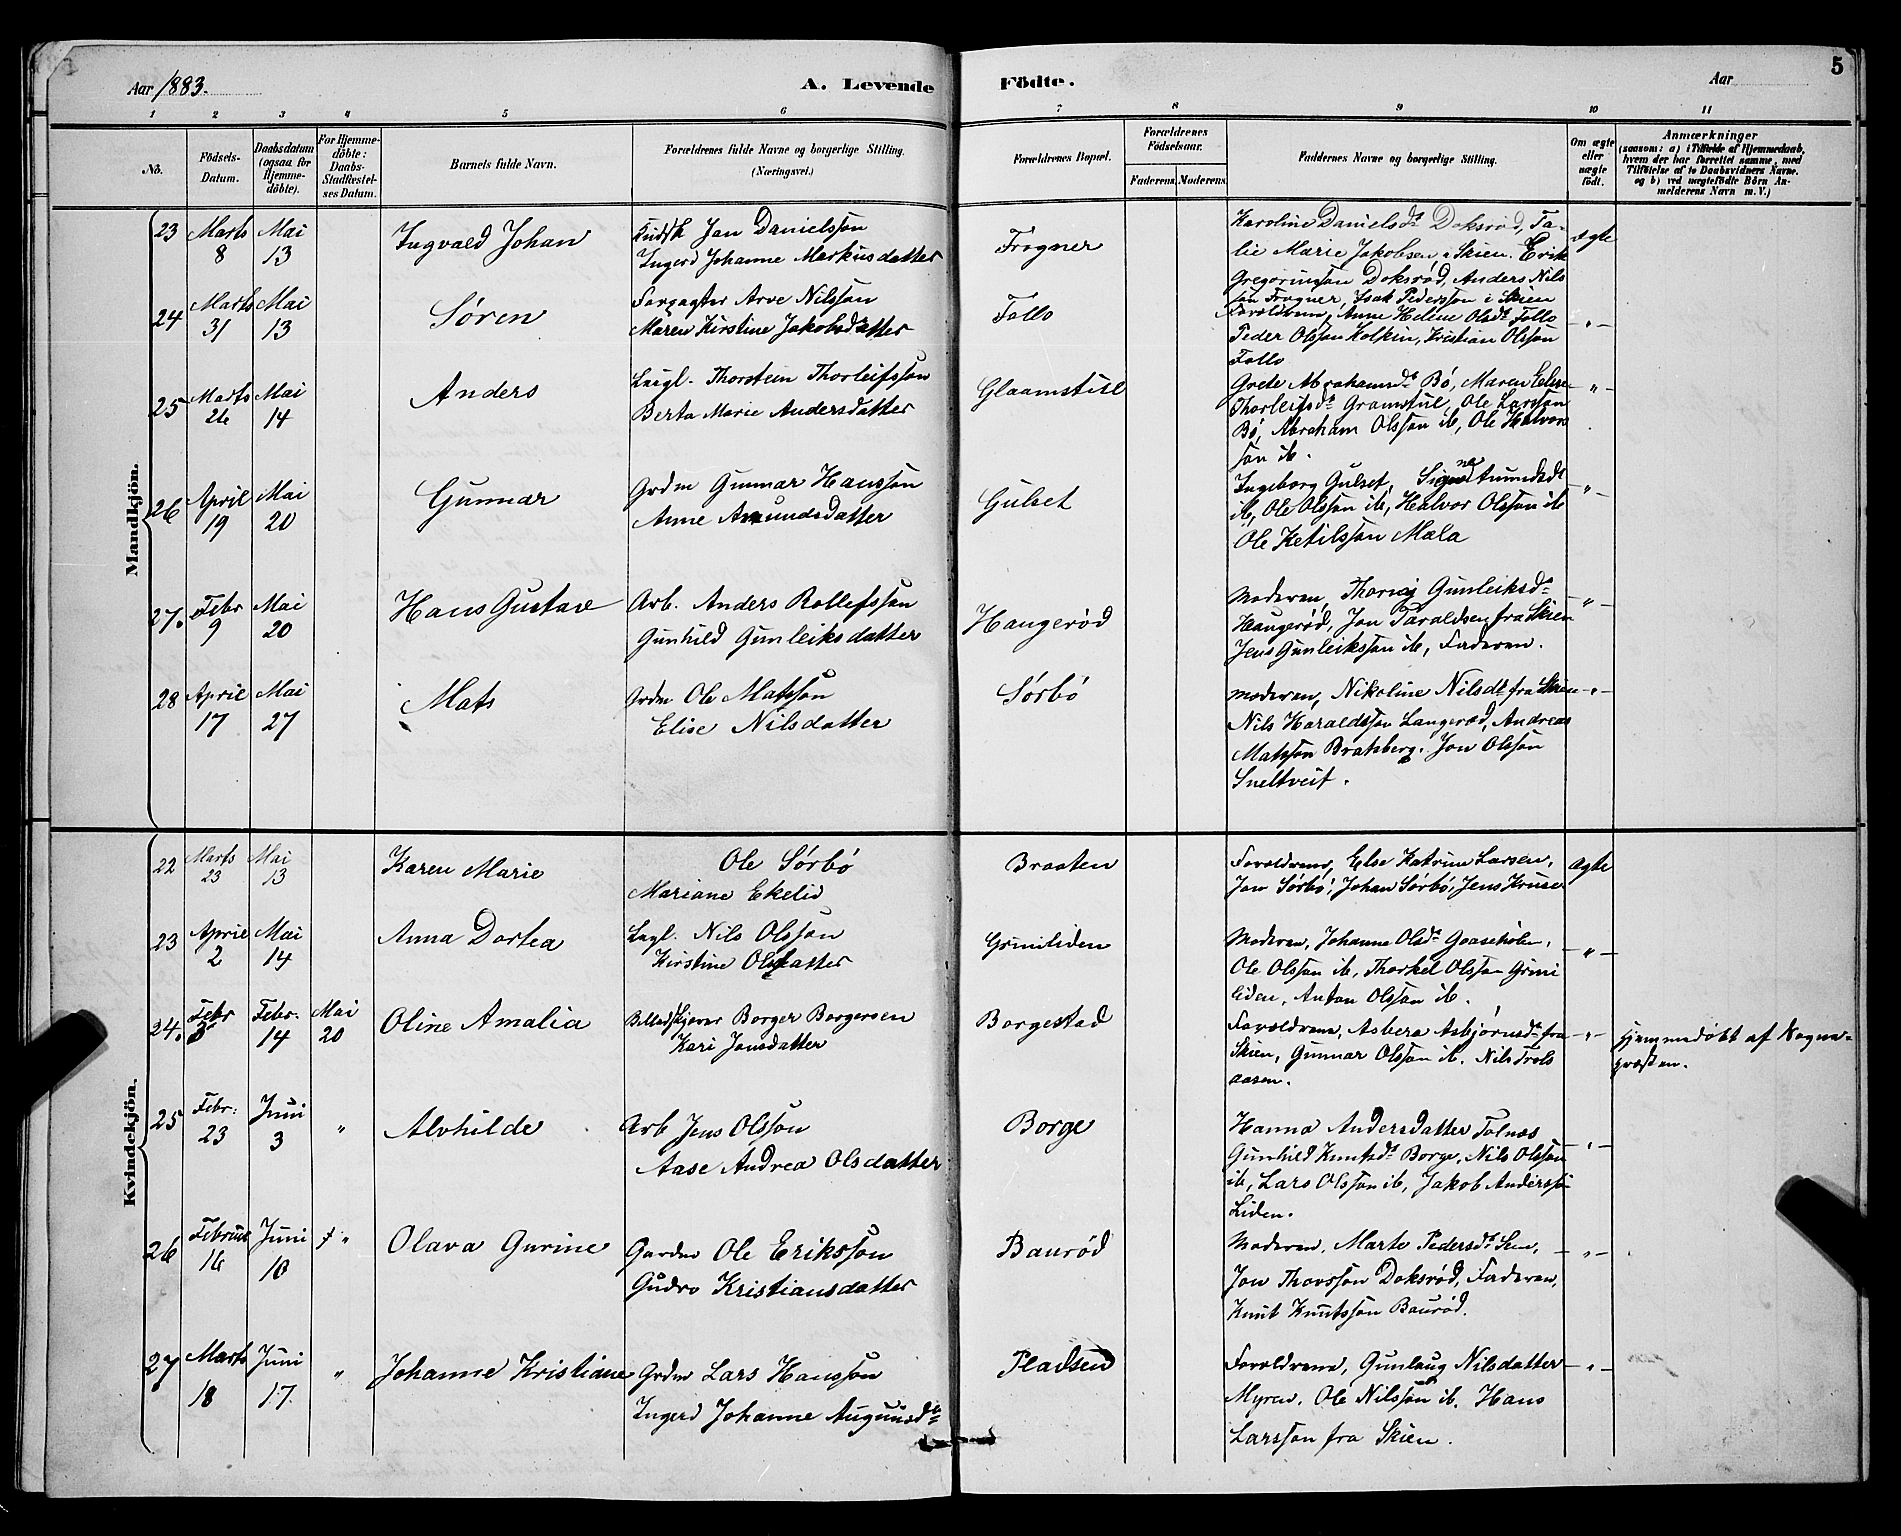 Aar 1883.
A. Levende
Födte.
Aar
5
1 2 3 4 5 6 7 8 9 10 11
No.
Födsels-
Datum.
Daabsdatum
(ogsaa for
Hjemme-
döbte).
For Hjemme-
döbte:
Daabs-
Stadfæstel-
ses Datum.
Barnets fulde Navn.
Forældrenes fulde Navne og borgerlige Stilling.
(Næringsvei.)
Forældrenes Bopæl.
Forældrenes
Födselsaar.
Faderens. Moderens.
Faddernes Navne og borgerlige Stilling.
Om ægte
eller
uægte
födt.
Anmærkninger
(saasom: a) i Tilfælde af Hjemmedaab,
hvem der har forrettet samme, med
Tilföielse af to Daabsvidners Navne.
og b) ved uægtefödte Börn An-
melderens Navn m. V.)
Mandkjön.
23 Marts 8 Mai 13
Ingvald Johan
Kudsk Jan Danielsson
Ingerd Johanne Markusdatter
Frogner
Karoline Danielsd. Doksrød, Ta-
lie Marie Jakobsen, i Skien. Erik
Gregoriusson Doksrød, Anders Nils
son Frogner, Isak Pedersson i Skien
ægte
24 Marts 31 Mai 13
Søren
Forpagter Arve Nilsson
Maren Kirstine Jakobsdatter
Follo
Forældrene, Anne Helene Olsd. Follo
Peder Olsson Kolkin, Kristian Olsson
Follo
-"-
25 Marts 26 Mai 14
Anders
Leigl. Thorstein Thorleifsson
Berta Marie Andersdatter
Glaamstul
Grete Abrahamsd. Bø, Maren Elise
Thorleifsd. Gromstul, Ole Larsson
Bø, Abraham Olsson ib, Ole Halvor
son ib.
-"-
26 April 19 Mai 20
Gunnar
Grdm Gunnar Hansson
Anne Amundsdatter
Gulset
Ingeborg Gulset, Signe Amundsdt
ib, Ole Olsson ib, Halvor Olsson ib
Ole Ketilsson Mæla
-"-
27. Febr 9 Mai 20
Hans Gustave
Arb. Anders Rollefsson
Gunhild Gunleiksdatter
Haugerød
Moderen, Gunleiksd.
Haugerød, Jon Taraldsen fra Skien
Jens Gunleiksson ib, Faderen.
-"-
28 April 17 Mai 27
Mats
Grdm Ole Matsson
Elise Nilsdatter
Sørbø
Moderen, Nikoline Nilsdt fra Skien
Nils Haraldsson Langerød, Andreas
Matsson Bratsberg. Jon Olsson
Sneltveit.
-"-
Kvindekjön.
22 Marts 23 Mai 13
Karen Marie
Ole Sørbø
Mariane Ekelid
Braaten
Forældrene, Else Katrine Larsen,
Jon Sørbø, Johan Sørbø, Jens Kruse
Ægte
23 April 2 Mai 14
Anna Dortea
Lægl. Nils Olsson
Kirstine Olsdatter
Grimliden
Moderen, Johanne Olsd. Gaaseholm,
Ole Olsson ib, Thorkel Olsson Grim
liden, Anton Olsson ib.
-"-
24. Febr 3 Febr. 14 Mai 20
Oline Amalia
Billedskjærer Borger Borgersen
Kari Jonsdatter
Borgestad
Forældrene, Asbera Asbjørnsd. fra
Skien, Gunnar Olsson ib. Nils Trols
aasen.
-"-
Hjemmedøbt af Sogne-
præsten.
25 Febr. 23 Juni 3 "
Alvhilde
Arb Jens Olsson
Aase Andrea Olsdatter
Borge
Hanna Andersdatter Tolnæs
Gunhild Knutsd. Borge, Nils Olsson
ib, Lars Olsson ib, Jakob Andersso
Liden.
-"-
26 Februar 16 Juni 10 "
Olava Gurine
Gardm Ole Eriksson
Gudro Kristiansdatter
Baurød
Moderen, Marte Pedersd. Sem,
Jon Thovsson Doksrød, Faderen,
Knut Knutsson Baurød.
-"-
27 Marts 18 Juni 17. "
Johanne Kristiane
Grdm Lars Hansson
Ingerd Johanne Augunsd.
Pladsen
Forældrene, Gunlaug Nilsdatter
Myren, Ole Nilsson ib. Hans
Larsson fra Skien.
-"-